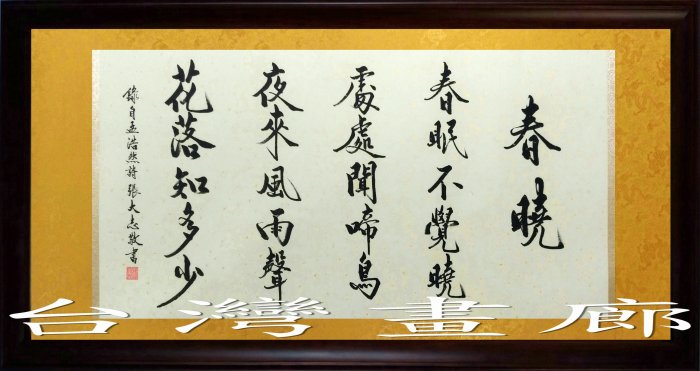 春曉
春眠不覺曉
處處聞啼鳥
夜來風雨聲
花落知多少
錄自孟浩然詩 張大志敬書
台灣畫廊